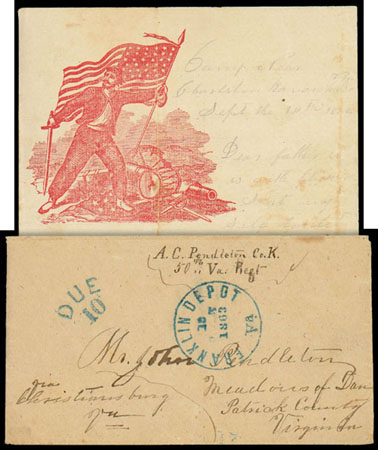 Camp Near
Charleston
Sept the 20th
Dear father
A. C. Pendleton Co. K.
50th Va. Regt
DUE
10
FRANKLIN DEPOT VA.
1863
Mr. John Pendleton
Meadows of Dan
Patrick County
Virginia
via
Christiansburg
Va